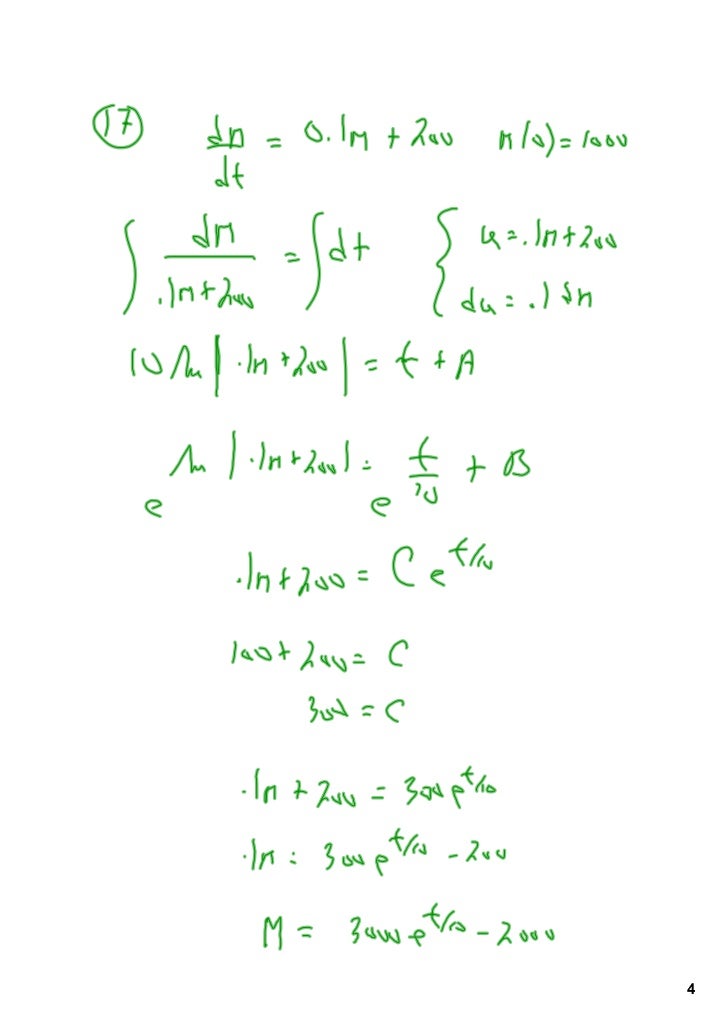 17 dM/dt = 0.1M + 200 M(0) = 1000
∫ dM/(.1M + 200) = ∫ dt { u = .1M + 200
du = .1 dM
10 ln |.1M + 200| = t + A
e^(ln |.1M + 200|) = e^(t/10 + B)
.1M + 200 = C e^(t/10)
100 + 200 = C
300 = C
.1M + 200 = 300 e^(t/10)
.1M = 300 e^(t/10) - 200
M = 3000 e^(t/10) - 2000
4